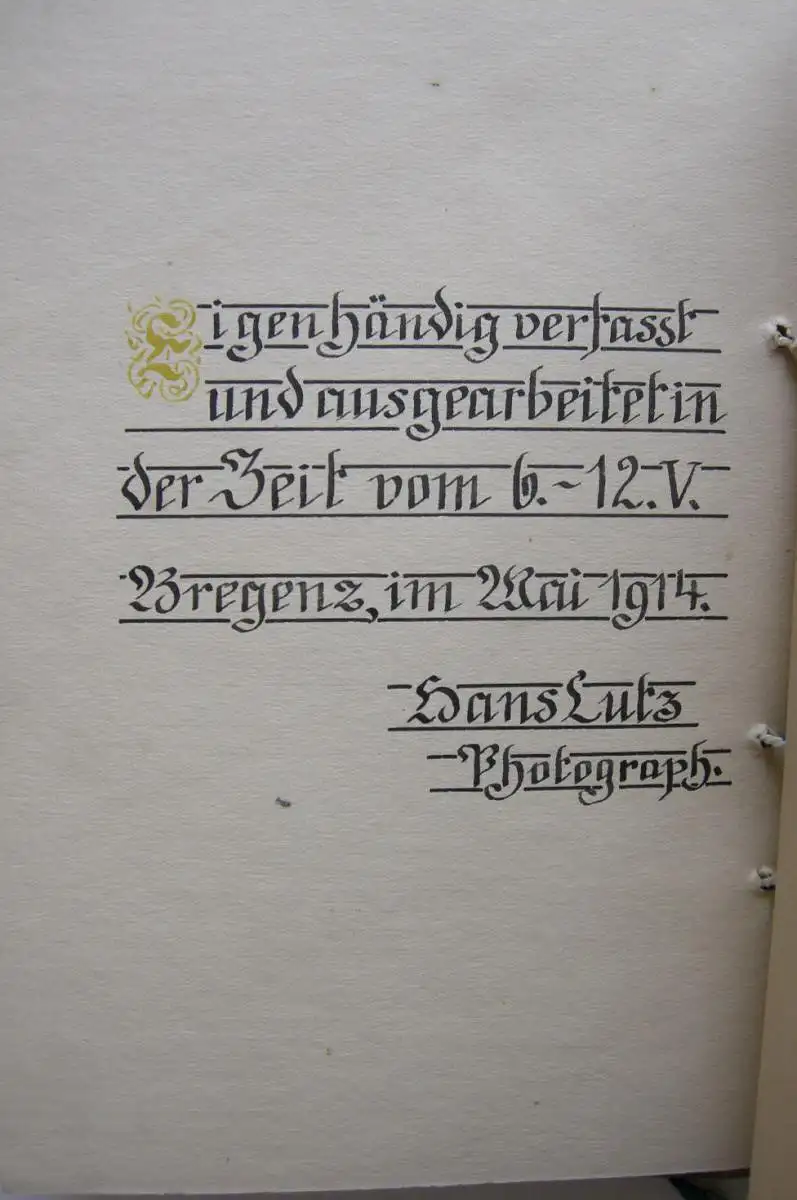 Eigenhändig verfasst
und ausgearbeitet in
der Zeit vom 6.-12.V.
Bregenz, im Mai 1914.
Hans Lutz
Photograph.